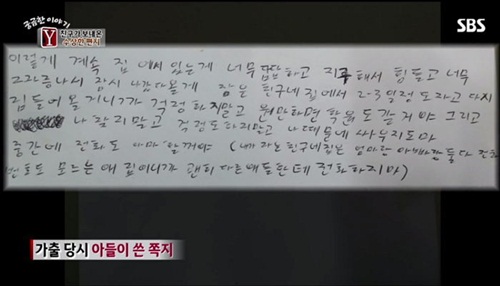 궁금한 이야기
Y
친구가 보내온
수상한 편지
SBS
이렇게 계속 집에서 있는게 너무 답답하고 지 해서 힘들고 너무
짜증나서 잠시 나갔다올게 잠은 친구네 집에서 2-3일정도자고 다시
집들어 올거니까 걱정하지말고 웬만하면 학원도갈거야 그리고
나찾지말고 걱정도하지말고 나때문에 싸우지도마
중간에 전화도 아마 할거야 (내가자는친구네집은 엄마랑 아빠랑둘다 전화
번호도 모르는애 집이니까 괜히 다른애들한테 전화하지마)
가출 당시 아들이 쓴 쪽지